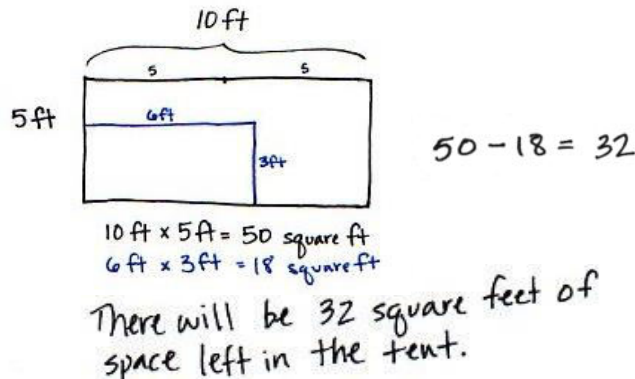 10ft
5 5
5ft
6ft
3ft
50 - 18 = 32
10 ft x 5ft = 50 square ft
6ft x 3ft = 18 square ft
There will be 32 square feet of
space left in the tent.